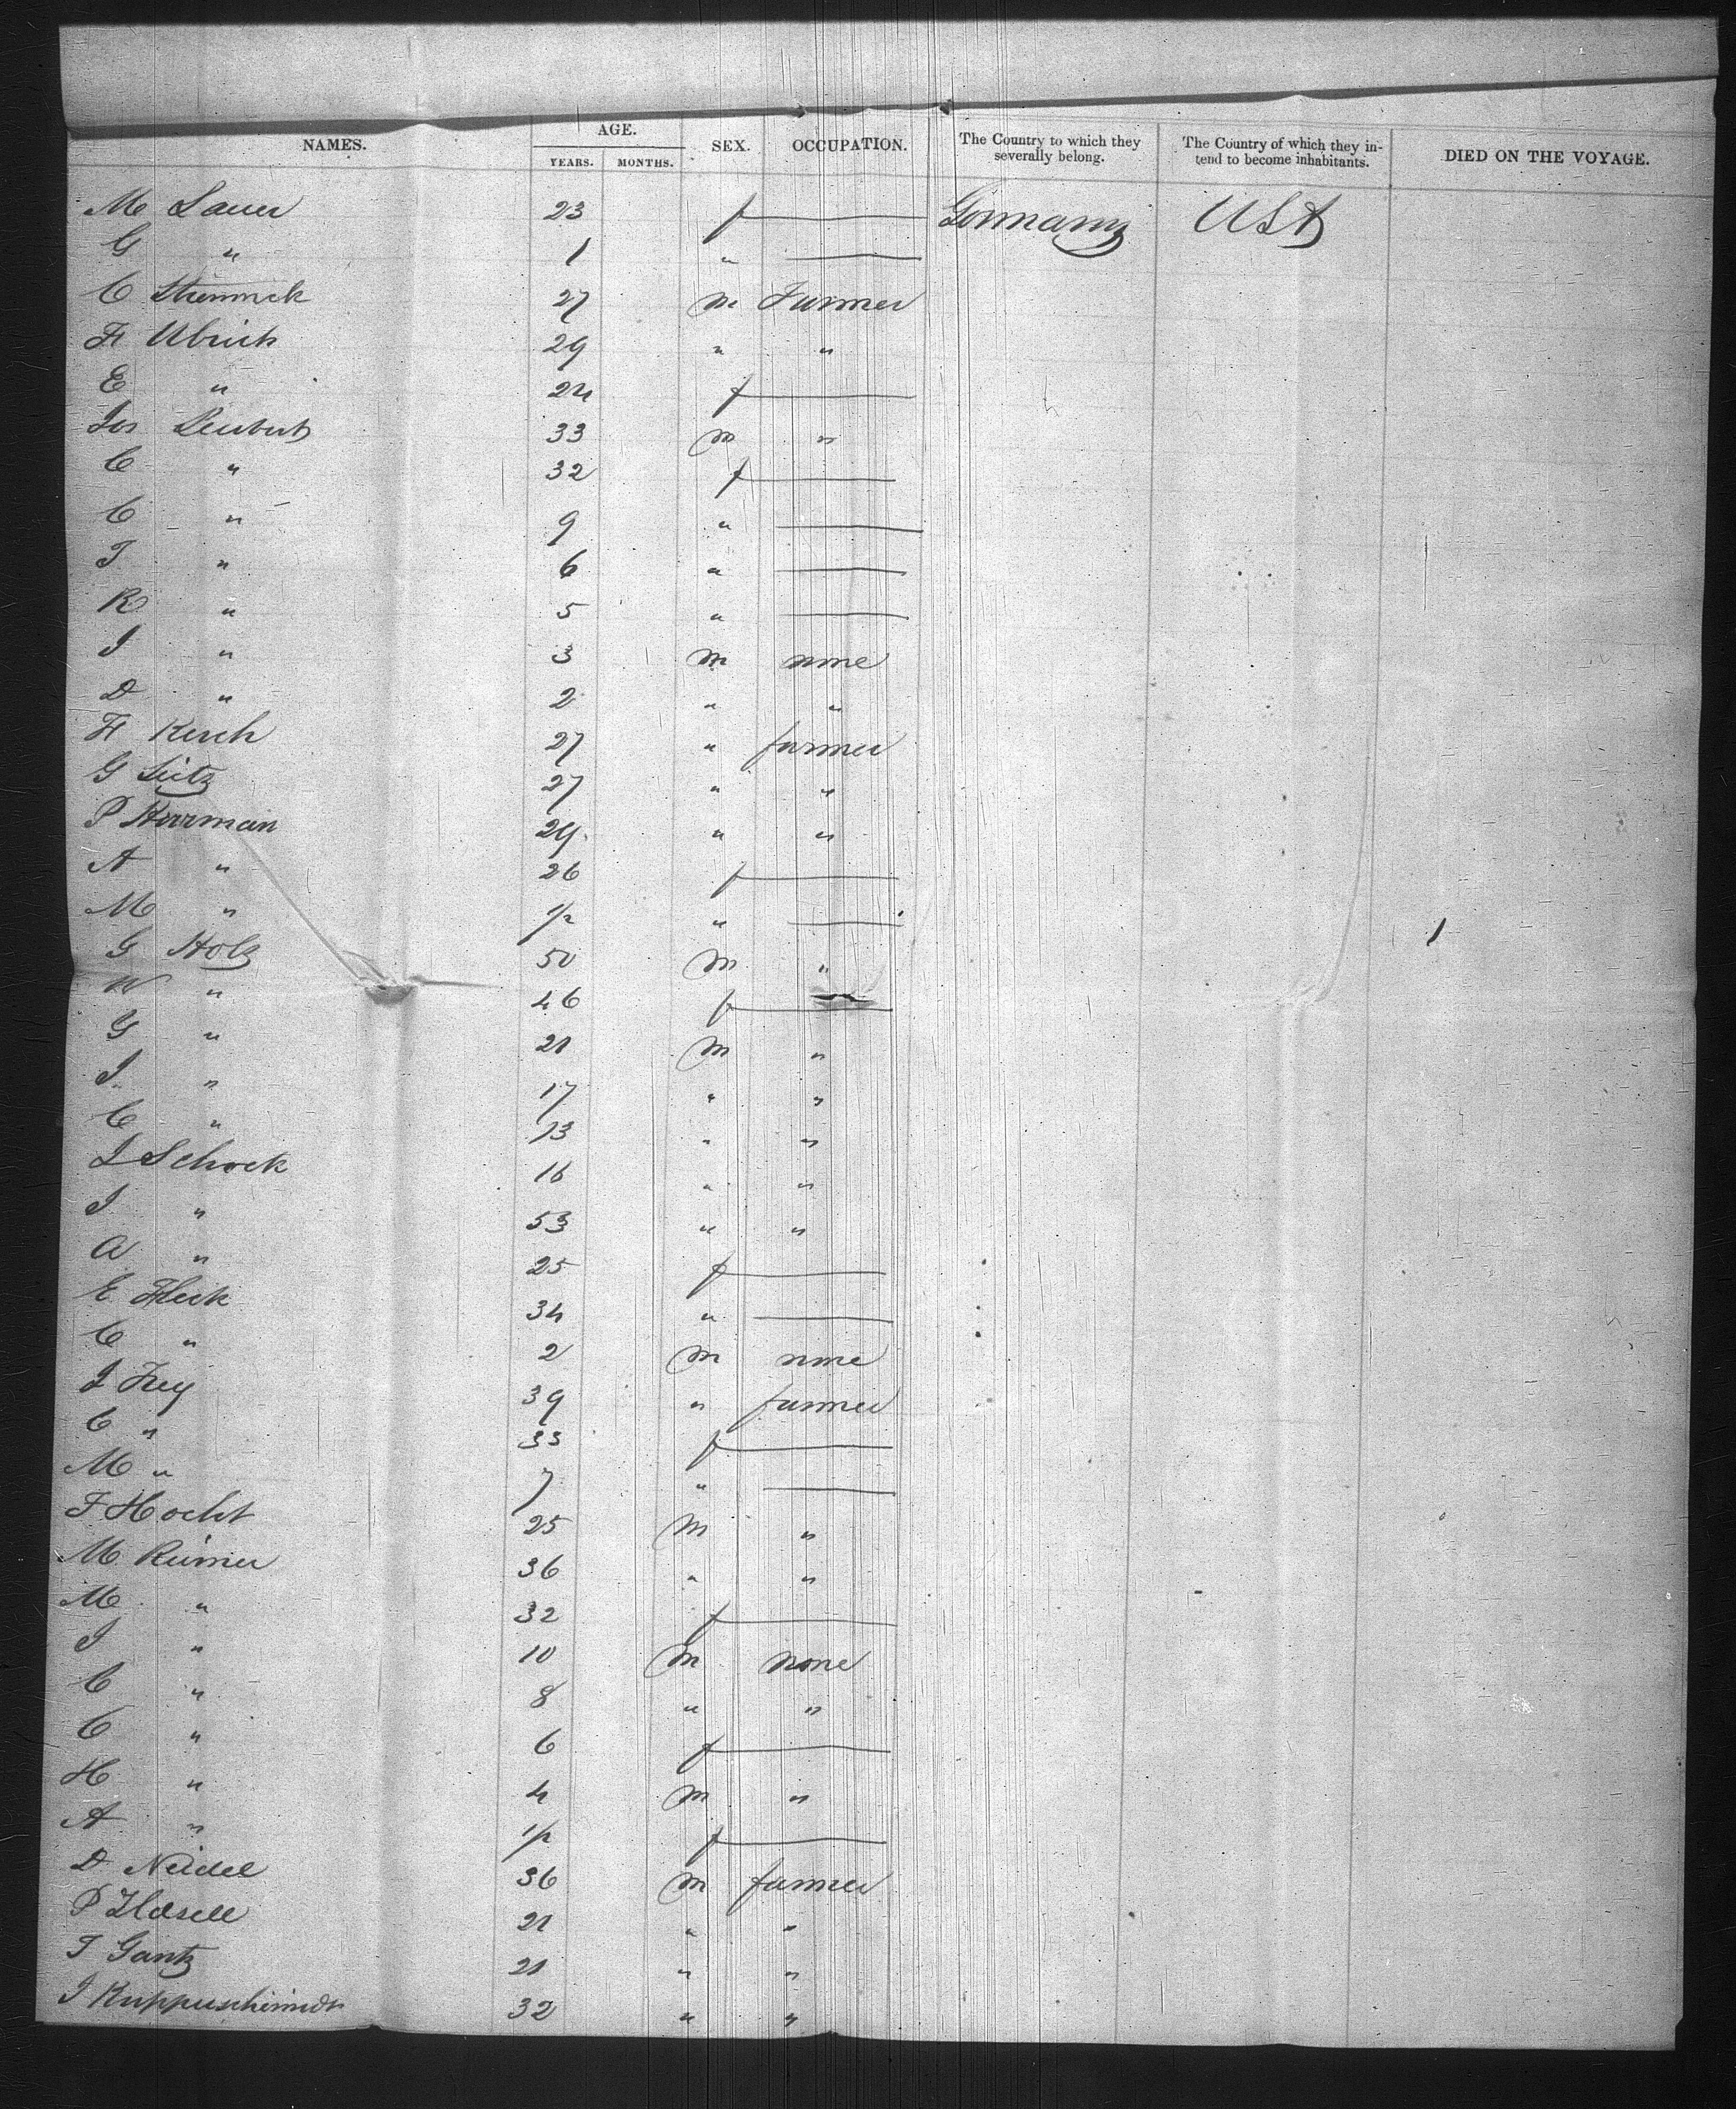 NAMES. AGE. SEX. OCCUPATION. The Country to which they severally belong. The Country of which they intend to become inhabitants. DIED ON THE VOYAGE.
YEARS. MONTHS.
M Lauer 23 f — Germany USA
G " 1 " —
C 27 m Farmer
F Ulrich 29 " "
E " 24 f —
Jos 33 m "
C " 32 f —
C " 9 " —
T " 6 " —
R " 5 " —
J " 3 m none
D " 2 " "
F Kesch 27 " farmer
G Seitz 27 " "
P Herrman 29 " "
A " 26 f —
M " 1/2 " — 1
G Holz 50 m "
W " 46 f —
G " 21 m "
J " 17 " "
C " 13 " "
J Schock 16 " "
J " 53 " "
A " 25 f —
E Fleck 34 " —
C " 2 m none
J Frey 39 " farmer
C " 33 f —
M " 7 " —
F Hocht 25 m "
M Reimer 36 " "
M " 32 f —
J " 10 m none
C " 8 " "
C " 6 f —
H " 4 m "
A " 1/2 f —
D Neidel 36 m farmer
P 21 " "
T Gantz 21 " "
J 32 " "